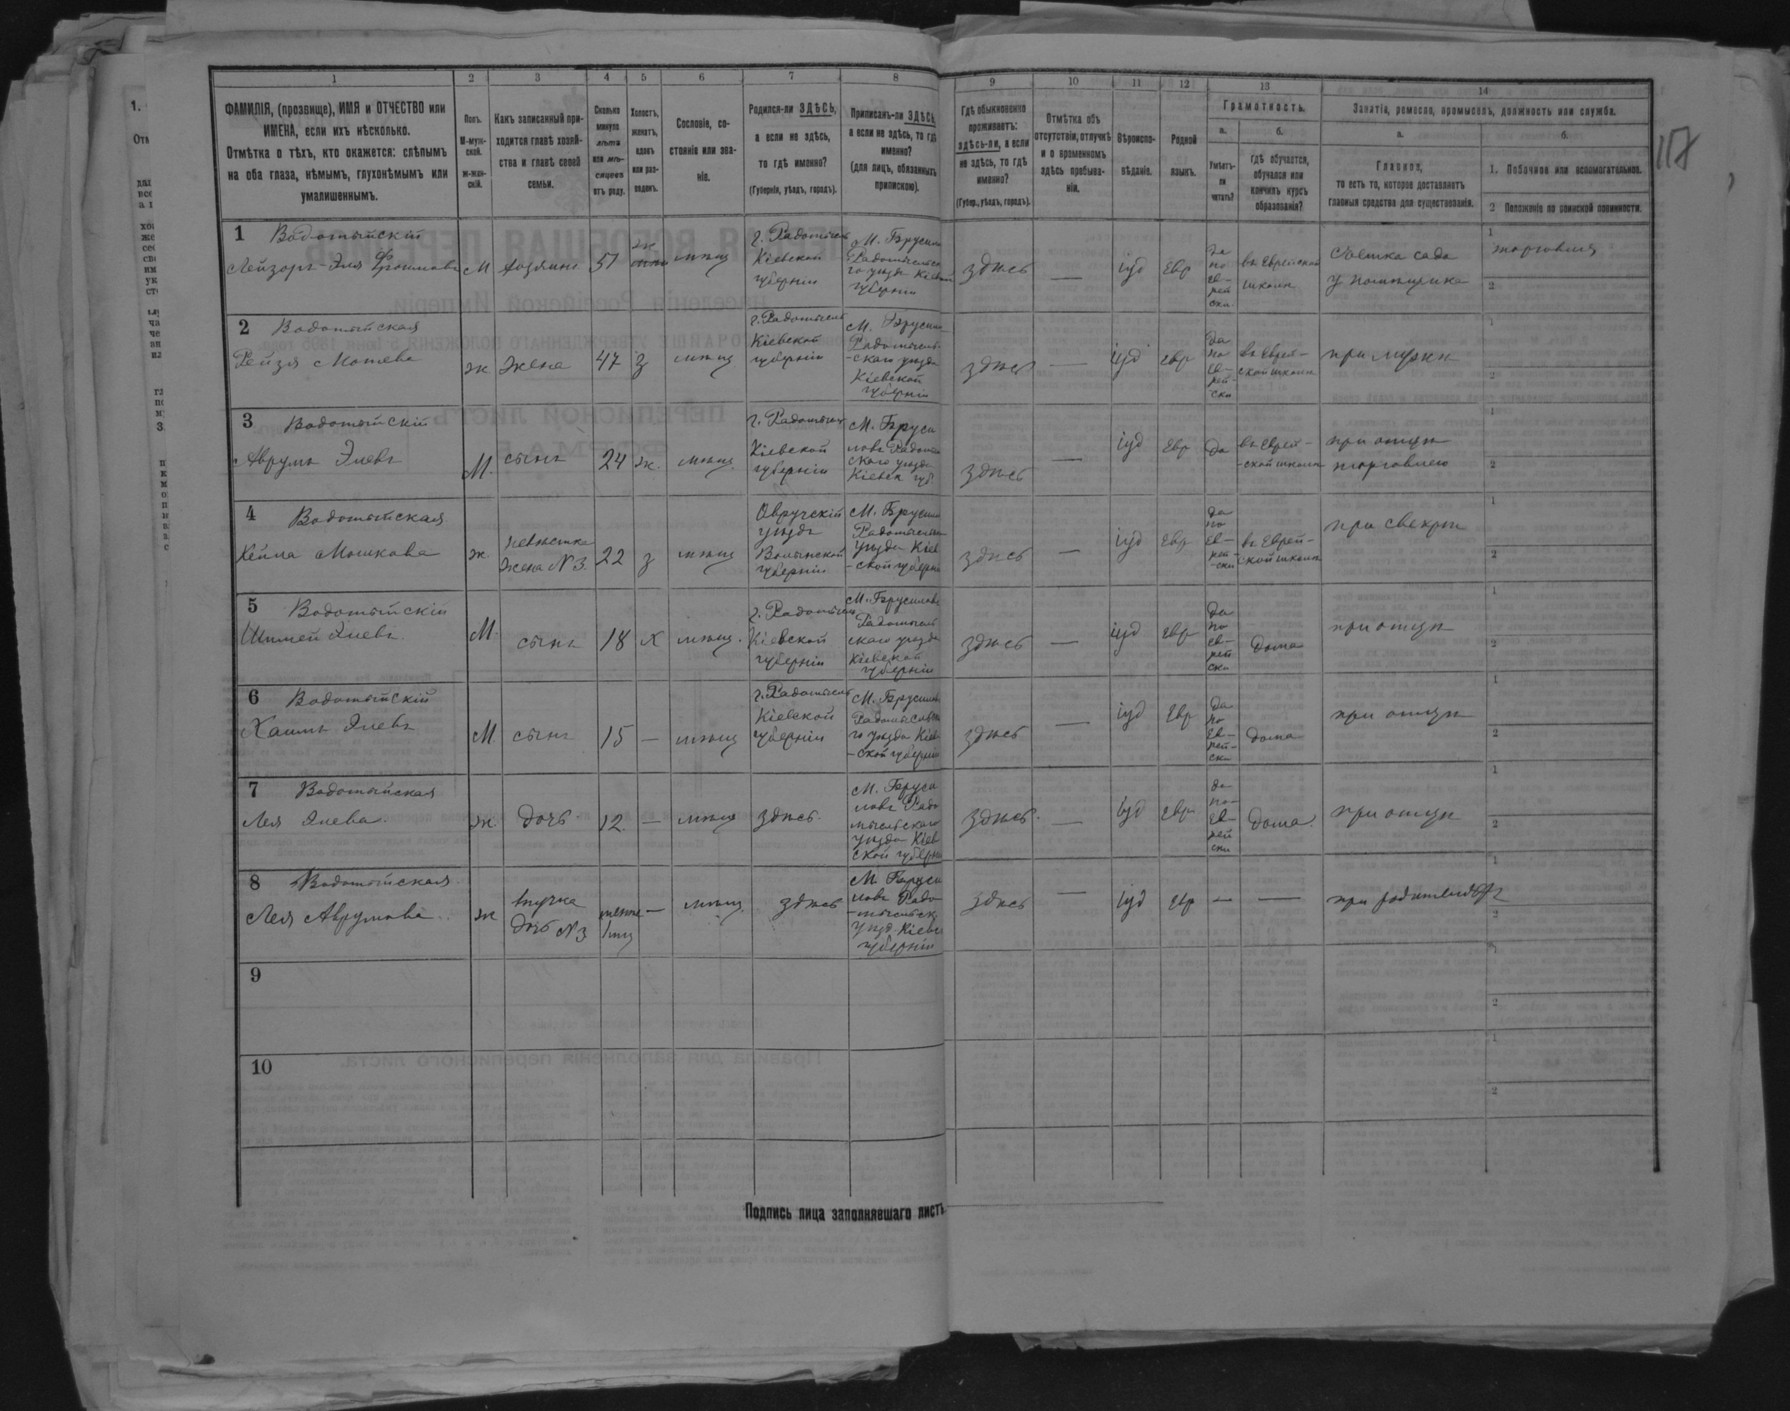 1 2 3 4 5 6 7 8 9 10 11 12 13 14
ФАМИЛІЯ, (прозвище), ИМЯ и ОТЧЕСТВО или
ИМЕНА, если ихъ нѣсколько.
Отмѣтка о тѣхъ, кто окажется: слѣпымъ
на оба глаза, нѣмымъ, глухонѣмымъ или
умалишеннымъ.
Полъ.
М-муж-
ской.
ж-жен-
скій.
Какъ записанный при-
ходится главѣ хозяй-
ства и главѣ своей
семьи.
Сколько
минуло
лѣтъ
или мѣ-
сяцевъ
отъ роду.
Холостъ,
женатъ,
вдовъ
или раз-
веденъ.
Сословіе, со-
стояніе или зва-
ніе.
Родился-ли ЗДѢСЬ,
а если не здѣсь,
то гдѣ именно?
(Губернія, уѣздъ, городъ).
Приписанъ-ли ЗДѢСЬ,
а если не здѣсь, то гдѣ
именно?
(для лицъ, обязанныхъ
припискою).
Гдѣ обыкновенно
проживаетъ:
здѣсь-ли, а если
не здѣсь, то гдѣ
именно?
(Губер., уѣздъ, городъ).
Отмѣтка объ
отсутствіи, отлучкѣ
и о временномъ
здѣсь пребыва-
ніи.
Вѣроиспо-
вѣданіе.
Родной
языкъ.
Грамотность.
а.
Умѣетъ-
ли
читать?
б.
гдѣ обучается,
обучался или
кончилъ курсъ
образованія?
Занятіе, ремесло, промыселъ, должность или служба.
а.
Главное,
то есть то, которое доставляетъ
главныя средства для существованія.
б.
1. Побочное или вспомогательное.
2 Положеніе по воинской повинности.
1 Водотыйскій
Лейзоръ-Эля Фроимовъ М хозяинъ 51 ж мѣщ
г. Радомысль
Кіевской
губерніи
М. Брусиловъ
губерніи
здѣсь — іуд евр
да
по
ев-
рей
ски
въ Еврейской
школѣ
Съемка сада
у помѣщика
1 торговля
2
2 Водотыйская
Рейзя Мотева ж Жена 47 з мѣщ
г. Радомысль
Кіевской
губерніи
М. Брусиловъ
Радомысль-
-скаго уѣзда
Кіевской
губерніи
здѣсь — іуд евр
да
по
ев-
рей-
ски
въ Еврей-
ской школѣ
при мужѣ
1
2
3 Водотыйскій
Аврумъ Элевъ М. сынъ 24 ж. мѣщ.
г. Радомысль
Кіевской
губерніи
М. Бруси
ловъ Радомы
скаго уѣзда
Кіевск губ.
здѣсь — іуд евр да
въ Еврей-
-ской школѣ
при отцѣ
торговлею
1
2
4 Водотыйская
Хейма Мошкова ж
невѣстка
жена №3. 22 з мѣщ
Овручскій
уѣздъ
Волынской
губерніи
М. Брусил
Радомысльск
уѣзда Кіев
-ской губерніи
здѣсь — іуд Евр
да
по
ев-
рей-
-ски
въ Еврей-
ской школѣ
при свекрѣ
1
2
5 Водотыйскій
Шимей Элевъ М. сынъ 18 х мѣщ.
г. Радомысль
Кіевской
губерніи
М. Брусиловъ
Радомысль
скаго уѣзда
Кіевской
губерніи
здѣсь — іуд Евр
да
по
ев-
рей
ски
дома
при отцѣ
1
2
6 Водотыйскій
Хаимъ Элевъ М сынъ 15 — мѣщ
г. Радомысль
Кіевской
губерніи
М. Брусиловъ
го уѣзда Кіев
-ской губерніи
здѣсь — іуд Евр
да
по
Ев-
рей-
ски
дома
при отцѣ
1
2
7 Водотыйская
Лея Элева. ж. Дочь. 12. — мѣщ здѣсь.
М. Бруси
ловъ Радо
мысльскаго
уѣзда Кіев
ской губерніи
здѣсь. — іуд Евр
да
по-
Ев-
рей
ски
дома.
при отцѣ
1
2
8 Водотыйская
Лея Аврумова. ж
внучка
дочь №3 — мѣщ. здѣсь
М. Бруси
ловъ Радо
-мысльск
уѣзд Кіевс
губерніи
здѣсь — іуд Евр — —
при родителяхъ
1
2
9
1
2
10
1
2
Подпись лица заполнявшаго листъ